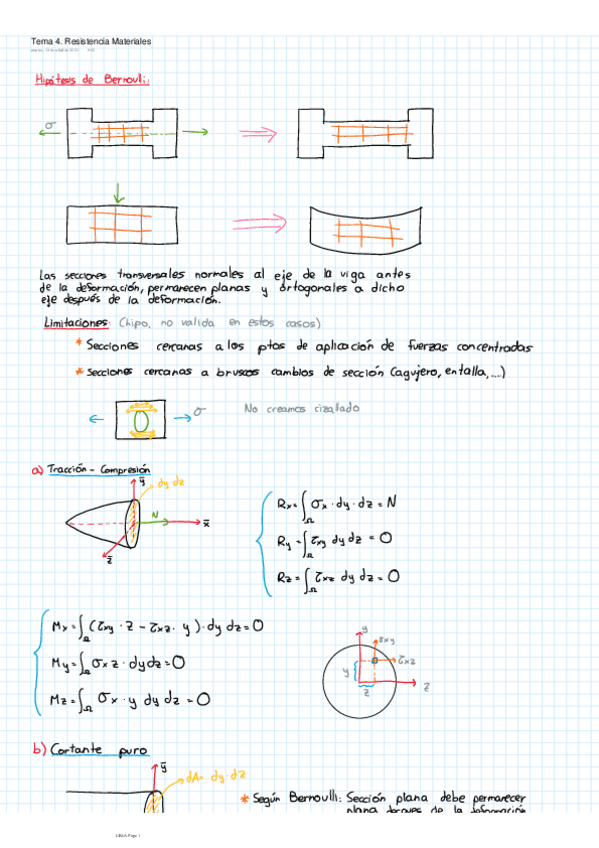 Tema 4. Resistencia Materiales
Hipótesis de Bernouli:
σ
Las secciones transversales normales al eje de la viga antes
de la deformación, permanecen planas y ortogonales a dicho
eje después de la deformación.
Limitaciones: (hipo. no valida en estos casos)
* Secciones cercanas a los ptos de aplicación de fuerzas concentradas
* Secciones cercanas a bruscos cambios de sección (agujero, entalla, ...)
σ No creamos cizallado
a) Tracción - Compresión
y̅ dy dz
N x̅
z̅
Rx = ∫Ω σx · dy · dz = N
Ry = ∫Ω τxy dy dz = 0
Rz = ∫Ω τxz dy dz = 0
Mx = ∫Ω (τxy · z - τxz · y) · dy dz = 0
My = ∫Ω σx z · dy dz = 0
Mz = ∫Ω σx · y dy dz = 0
y τxy
τxz
y
z z
b) Cortante puro
y̅ dA= dy · dz
* Según Bernoulli: Sección plana debe permanecer
plana después de la deformación